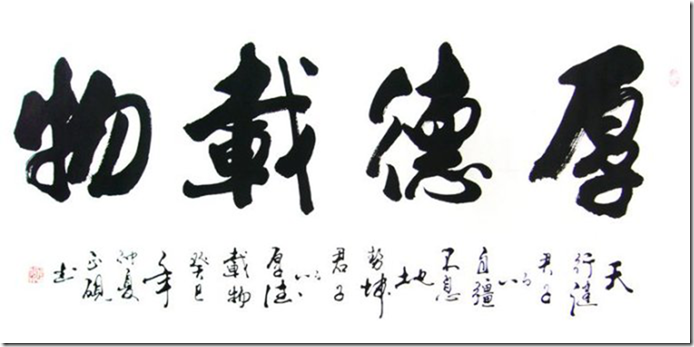 厚德載物
天行健君子以自彊不息地勢坤君子以厚德載物癸巳年仲夏書